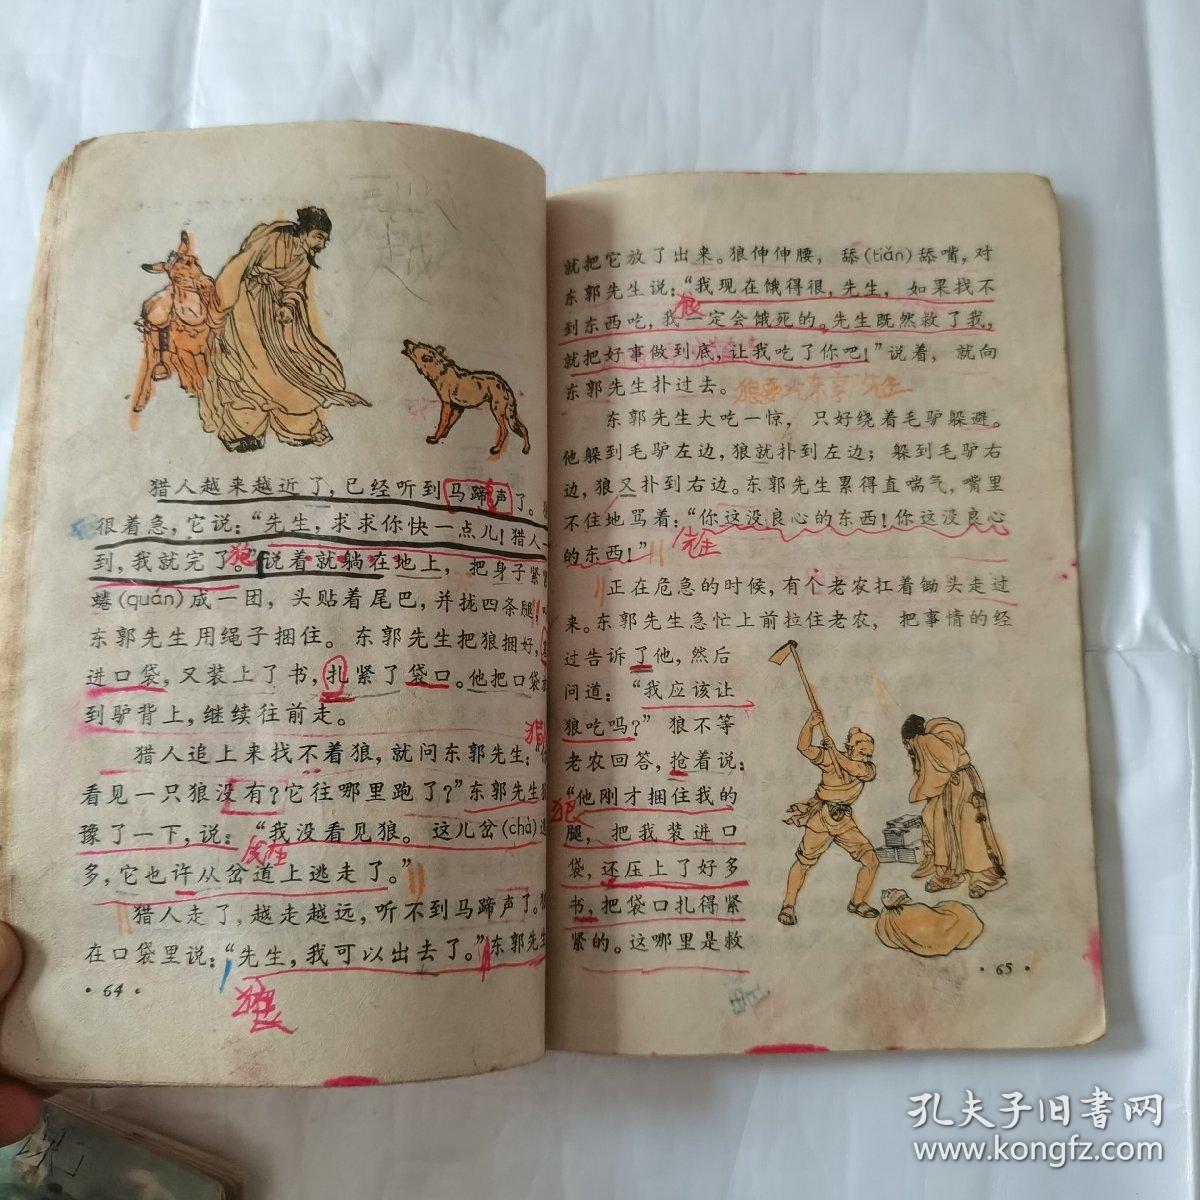 猎人越来越近了，已经听到马蹄声了。
很着急，它说：“先生，求求你快一点儿！猎人一
到，我就完了。”说着就躺在地上，把身子紧
蜷(quán)成一团，头贴着尾巴，并拢四条腿，
东郭先生用绳子捆住。东郭先生把狼捆好，
进口袋，又装上了书，扎紧了袋口。他把口袋
到驴背上，继续往前走。
猎人追上来找不着狼，就问东郭先生：
看见一只狼没有？它往哪里跑了？”东郭先生
豫了一下，说：“我没看见狼。这儿岔(chà)道
多，它也许从岔道上逃走了。”
猎人走了，越走越远，听不到马蹄声了。
在口袋里说：“先生，我可以出去了。”东郭先生
·64·
狼
猎
狼
就把它放了出来。狼伸伸腰，舔(tiǎn)舔嘴，对
东郭先生说：“我现在饿得很，先生，如果找不
到东西吃，我一定会饿死的。先生既然救了我，
就把好事做到底，让我吃了你吧！”说着，就向
东郭先生扑过去。
东郭先生大吃一惊，只好绕着毛驴躲避。
他躲到毛驴左边，狼就扑到左边；躲到毛驴右
边，狼又扑到右边。东郭先生累得直喘气，嘴里
不住地骂着：“你这没良心的东西！你这没良心
的东西！”
正在危急的时候，有个老农扛着锄头走过
来。东郭先生急忙上前拉住老农，把事情的经
过告诉了他，然后
问道：“我应该让
狼吃吗？”狼不等
老农回答，抢着说：
“他刚才捆住我的
腿，把我装进口
袋，还压上了好多
书，把袋口扎得紧
紧的。这哪里是救
·65·
狼
先生
狼
孔夫子旧书网
www.kongfz.com